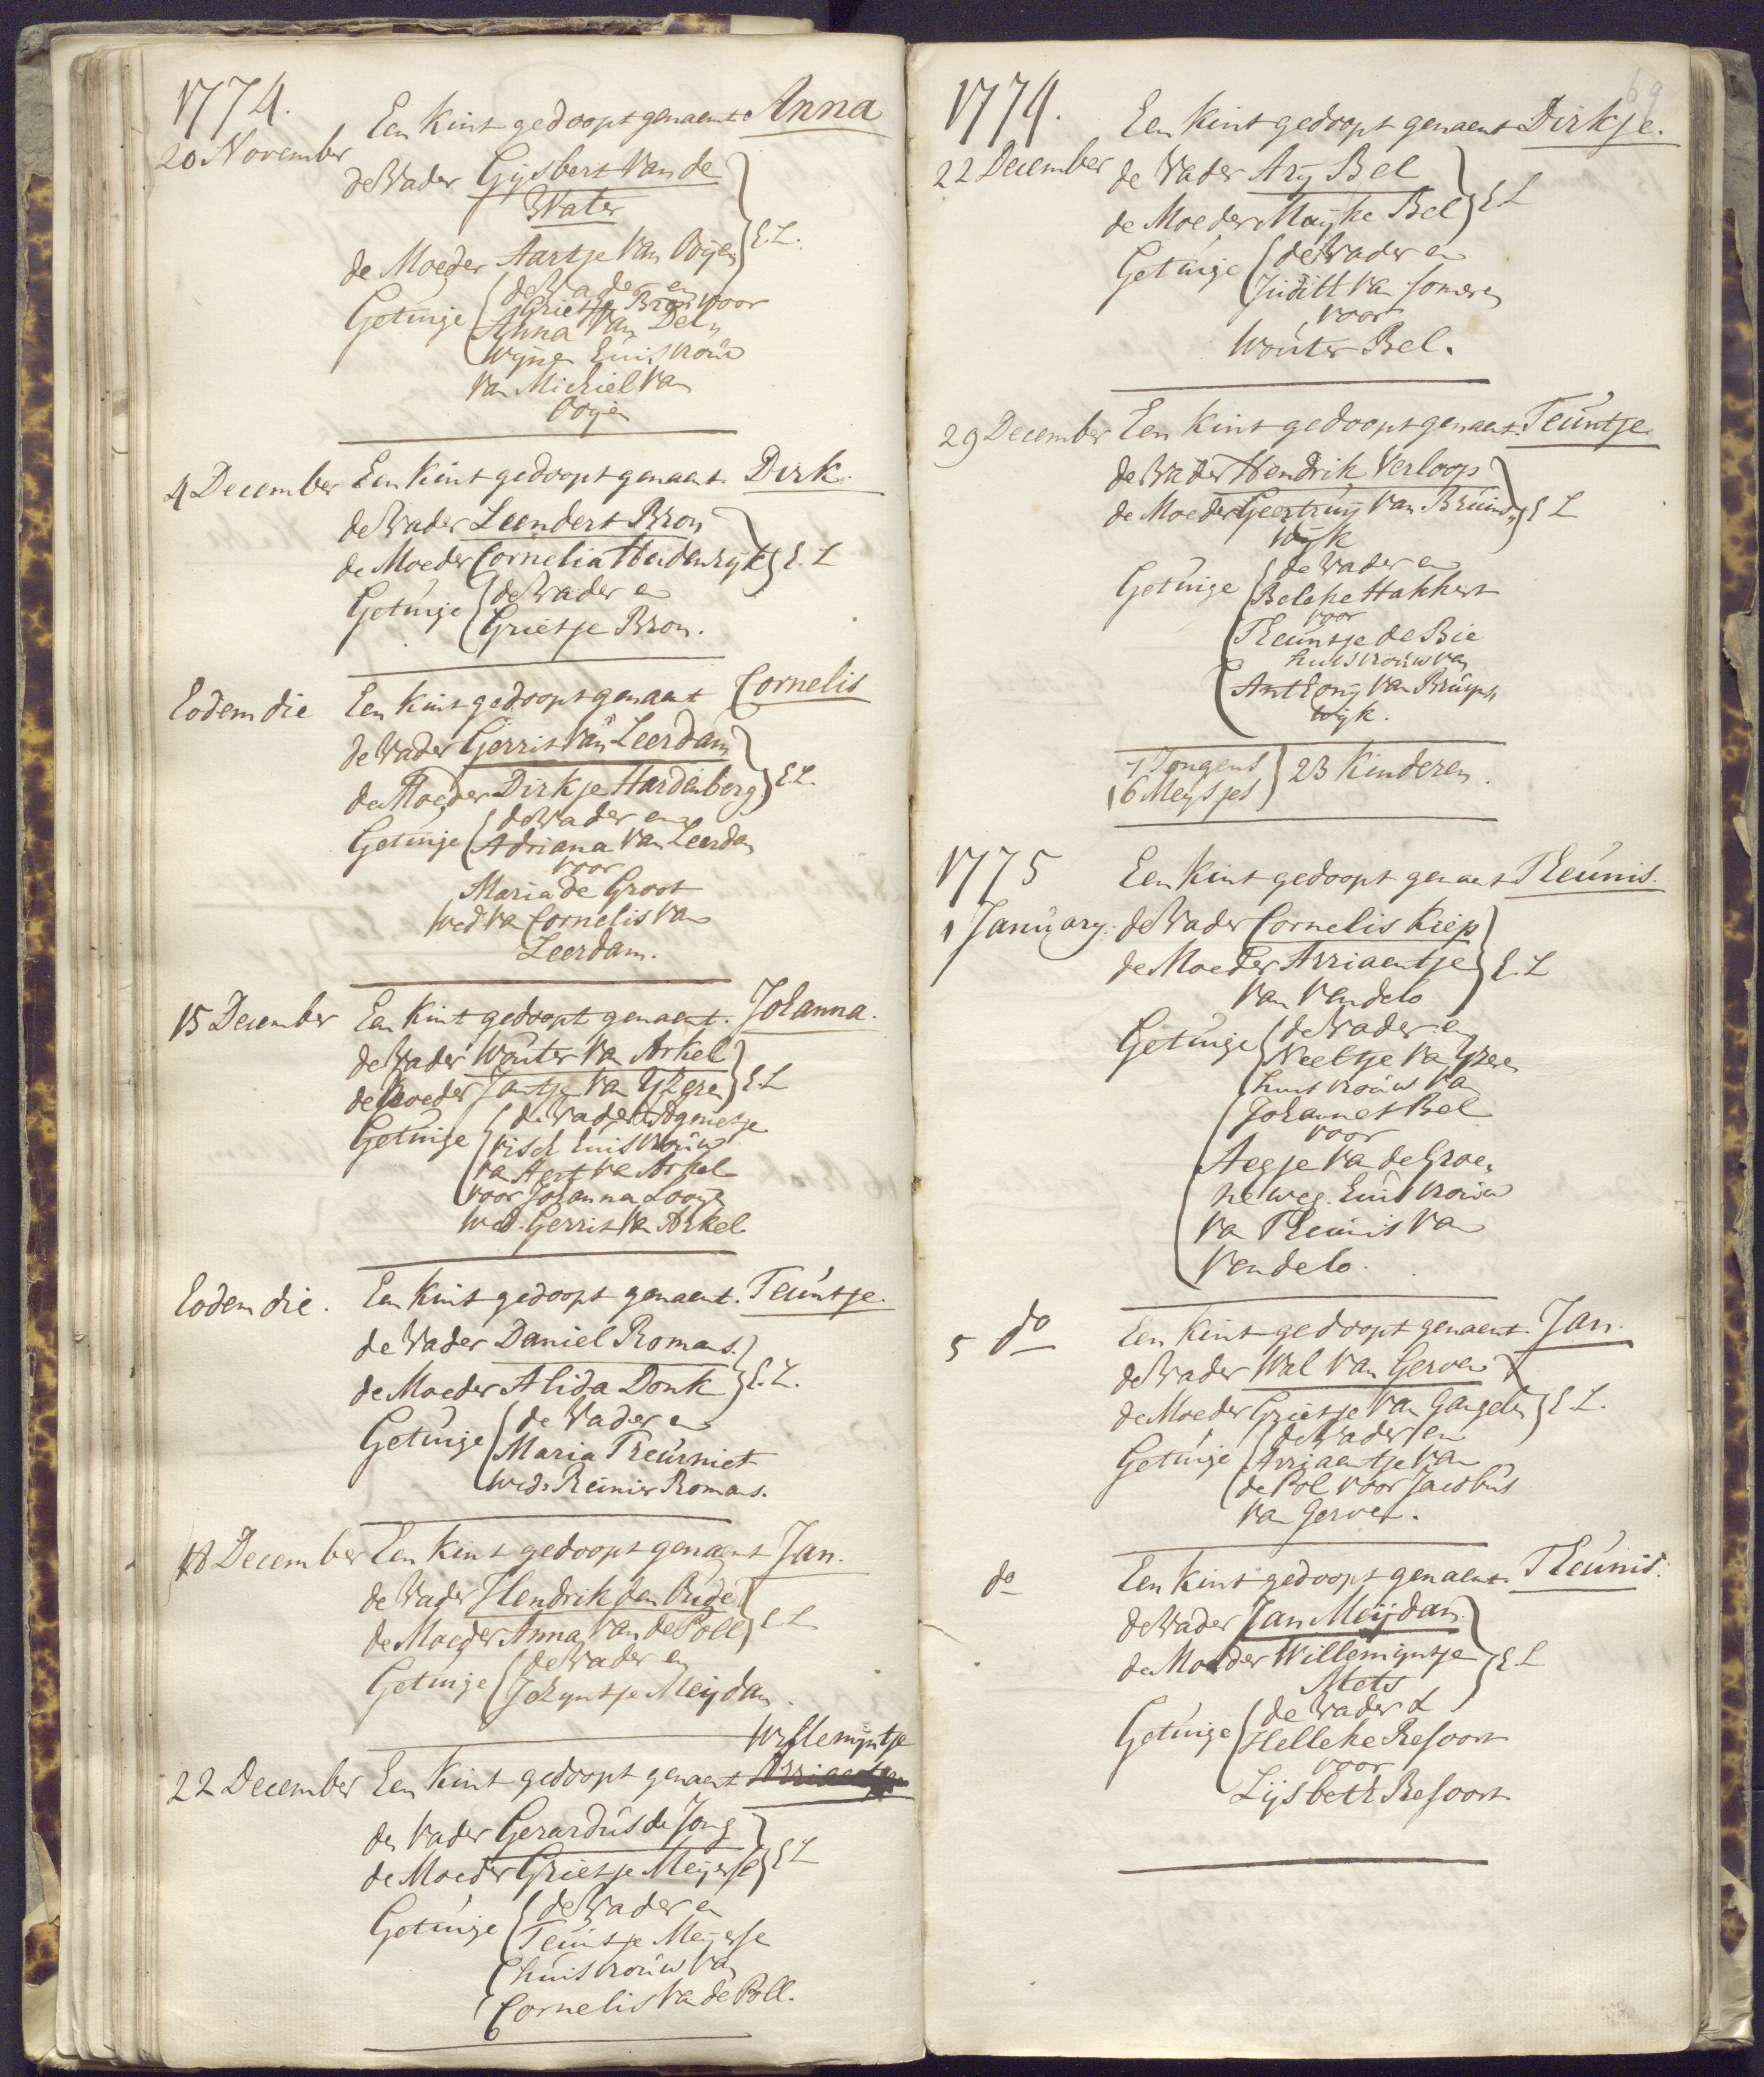 1774.
Een Kint gedoopt genaemt Anna
20 November
de Vader Gijsbert Van de
Water
de Moeder Aartje Van Oijen } E.L.
Getuige de Vader en
Grietje Bron voor
Anna Van Del„
wijne huisvrouw
Van Michiel Van
Ooijen
4 December Een Kint gedoopt genaemt Dirk.
de Vader Leendert Bron
de Moeder Cornelia Heidenrijk } E. L
Getuige de Vader en
Grietje Bron.
Eodem die Een Kint gedoopt genaemt Cornelis
de Vader Gerrit Van Leerdam
de Moeder Dirkje Hardenberg } E.L.
Getuige de Vader en
Adriana Van Leerdam
voor
Maria de Groot
wed Va Cornelis Van
Leerdam.
15 December Een Kint gedoopt genaemt. Johanna.
de Vader Wouter Va Arkel
de Moeder Jantje Van IJzere } E.L
Getuige de Vader
Visch huisvrouw
va Aert va Arkel
voor Johanna Looije
wed. Gerrit Va Arkel
Eodem die. Een Kint gedoopt genaemt. Teuntje.
de Vader Daniel Romans.
de Moeder Alida Donk } E.L.
Getuige de Vader en
Maria Treurniet
wed. Reinier Romans.
18 December Een Kint gedoopt genaemt Jan.
de Vader Hendrik den Oude
de Moeder Anna Van de Poll } E L
Getuige de Vader en
Johzyntje Meijdam.
Willemijntje
22 December Een Kint gedoopt genaemt Arriaentje
de Vader Gerardus de Jong
de Moeder Grietje Meijerse } E L
Getuige de Vader en
Teuntje Meijerse
huisvrouw Van
Cornelis Va de Poll.
69
1774.
Een Kint gedoopt genaemt Dirkje.
22 December de Vader Arij Bel
de Moeder Maijke Bel } E L
Getuige de Vader en
Juditt Va Someren
voor
Wouter Bel.
29 December Een Kint gedoopt genaemt. Teuntje.
de Vader Hendrik Verloop
de Moeder Geertruij Van Bruins„ } E L
Wijk
Getuige de Vader en
Beleke Hakkert
voor
Theuntje de Bie
huisvrouw van
Anthonij Van Bruijns
wijk.
7 Jongens
16 Meijsjes } 23 Kinderen.
1775 Een Kint gedoopt genaemt Theunis.
1 January. de Vader Cornelis Kiep
de Moeder Arriaentje } E.L
Van Vendelo
Getuige de Vader en
Neeltje Va IJzeren
huisvrouw Va
Johannes Bel
voor
Aegje Va de Groe„
neweg. huisvrouw
Va Theunis Van
Vendelo.
5 do Een Kint gedoopt genaemt. Jan.
de Vader Wal Van Gerven
de Moeder Grietje Van Gangelen } E.L.
Getuige de Vader en
Arriaentje Van
de Pol voor Jacobus
Va Gerven.
do Een Kint gedoopt genaemt. Theunis.
de Vader Jan Meijdam.
de Moeder Willemijntje } E.L
Mets
Getuige de Vader &
Helleke Resoort
voor
Lijsbeth Resoort